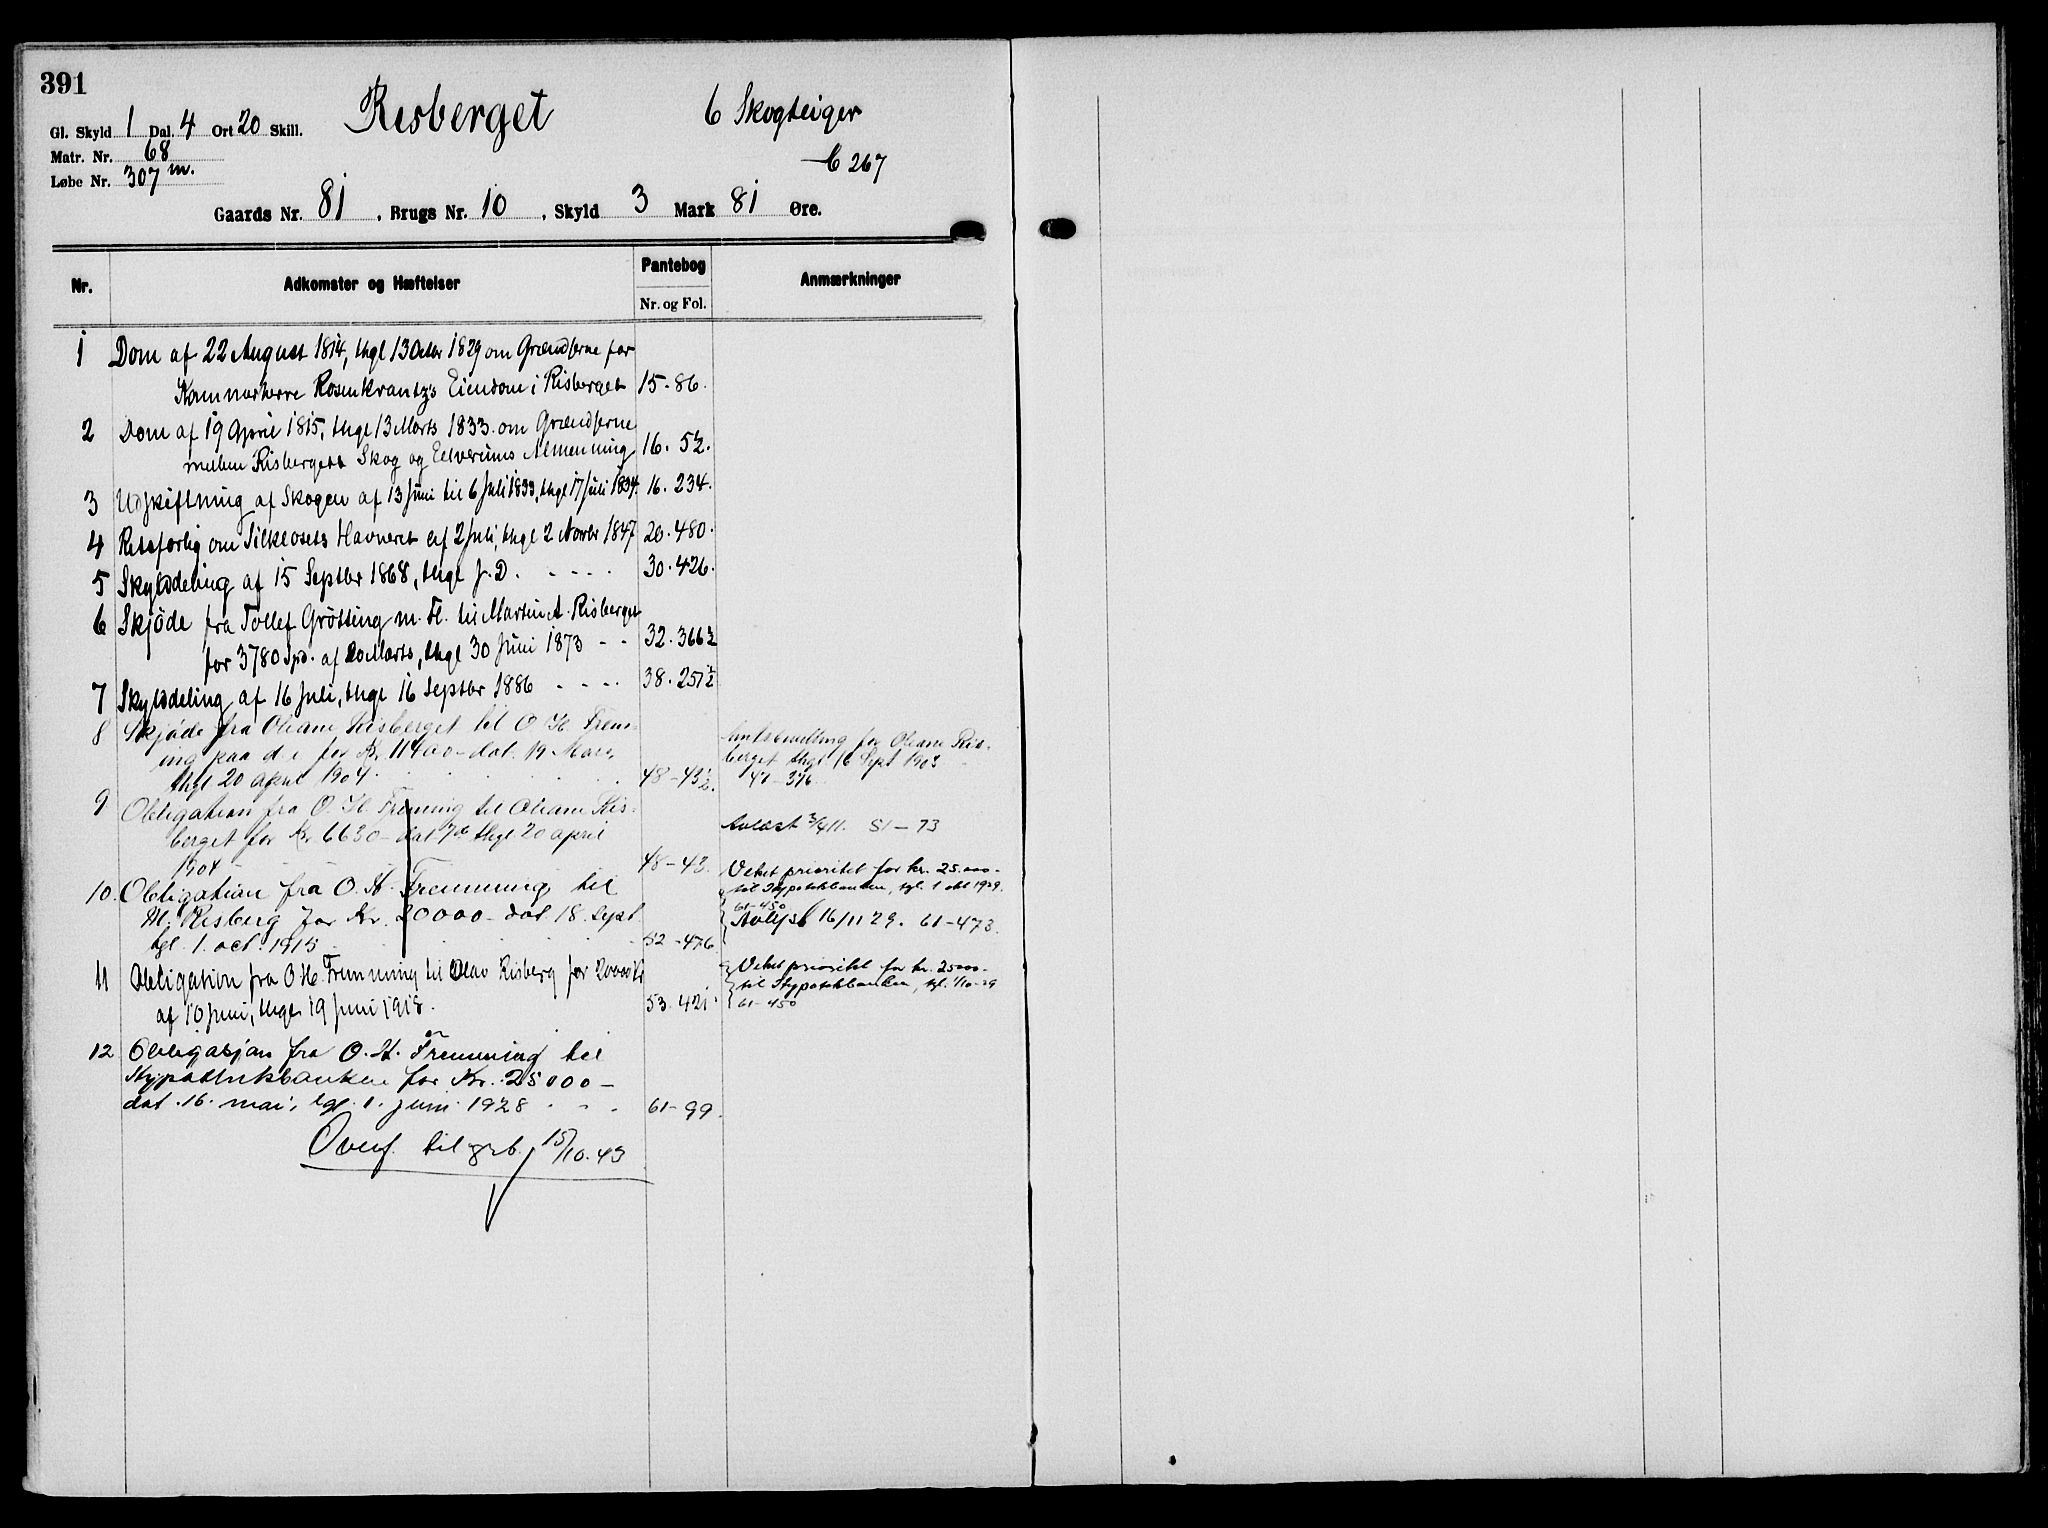 391
Gl. Skyld 1 Dal. 4 Ort 20 Skill.
Risberget
6 Skogteiger
Matr. Nr. 68
C 267
Løbe Nr. 307 m.
Gaards Nr. 81, Brugs Nr. 10, Skyld 3 Mark 81 Øre.
Nr. Adkomster og Hæftelser Pantebog Nr. og Fol. Anmærkninger
1 Dom af 22 August 1814, thgl 13 Octbr 1829 om Grændserne for
Kammerherre Rosenkrantz's Eiendom i Risberget 15. 86.
2 Dom af 19 April 1815, thgl 13 Marts 1833 om Grændserne
mellem Risbergets Skog og Elverums Almenning 16. 52.
3 Udskiftning af Skogen af 13 Juni til 6 Juli 1833, thgl 17 Juli 1834. 16. 234.
4 Retsforlig om Silkeosets Havneret af 2 Juli, thgl 2 Novbr 1847 20. 480.
5 Skylddeling af 15 Septbr 1868, thgl s. D. - - - - 30. 426.
6 Skjöde fra Tollef Grötting m. Fl. til Martin A. Risberget
for 3780 Spd. af 20 Marts, thgl 30 Juni 1873 - - 32. 366½
7 Skylddeling af 16 Juli, thgl 16 Septbr 1886 - - - - 38. 251½
8 Skjøde fra Oliane Risberget til O H Frem-
ing paa d. e for Kr 11400 - dat. 19 Mars,
thgl 20 april 1904 48-43½.
berget thgl 16 Sept 1903
9 Obligation fra O. H. Fremming til Oliane Ris-
berget for Kr 6630 - dat thgl 20 april
1904 48-43.
Avlæst 3/4 11. 51-73
10. Obligation fra O. H. Fremming til
M. Risberg for Kr. 20000 - dat 18. sept
tgl. 1. oct. 1915 52-476
Veket prioritet for kr. 25.000-
til Hypotekbanken, tgl. 1 okt 1929.
61-450
Avlyst 16/11 29. 61-473.
11 Obligation fra O H. Fremming til Olav Risberg for 20000 Kr
af 10 Juni, thgl 19 Juni 1918. 53. 421.
Veket prioritet for kr. 25000-
til Hypotekbanken, tgl. 1/10-29
61-450
12 Obligasjon fra O. H. Fremming til
Hypotekbanken for Kr. 25000-
dat. 16. mai, tgl. 1. juni 1928 - - - 61-99.
Overf. til grb. 15/10.43